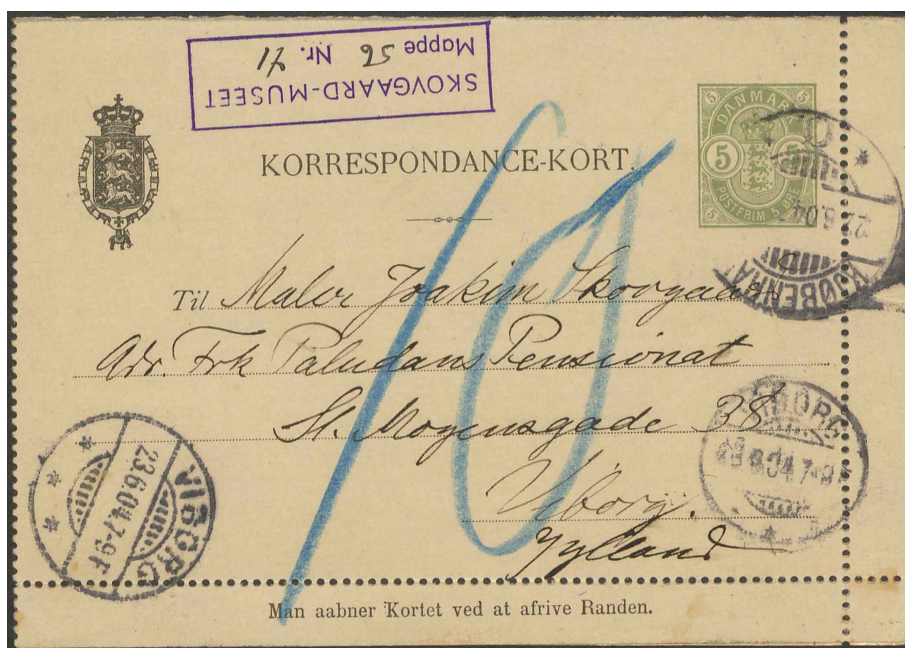 SKOVGAARD-MUSEET
Mappe 56 Nr. 71
KORRESPONDANCE-KORT.
5 DANMARK 5
5 5
5 POSTFRIM 5 ØRE 5
KJØBENHA
10
Til Maler Joakim Skovgaard
Adr. Frk Paludans Pensionat
St. Mogensgade 38
Viborg.
Jylland
VIBORG
23.6.04.7-9F
VIBORG
23.6.04.7-9
Man aabner Kortet ved at afrive Randen.